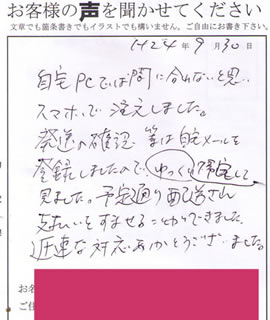 お客様の声を聞かせてください
文章でも箇条書きでもイラストでも構いません。ご自由にお書き下さい。
H24年9月30日
自宅PCでは間に合わないと思い
スマホで注文しました。
発送の確認等は自宅メールを
登録しましたので、ゆっくり帰宅して
見ました。予定通り配送され
支払いをすませることができました。
迅速な対応ありがとうございました。
お名
ご住